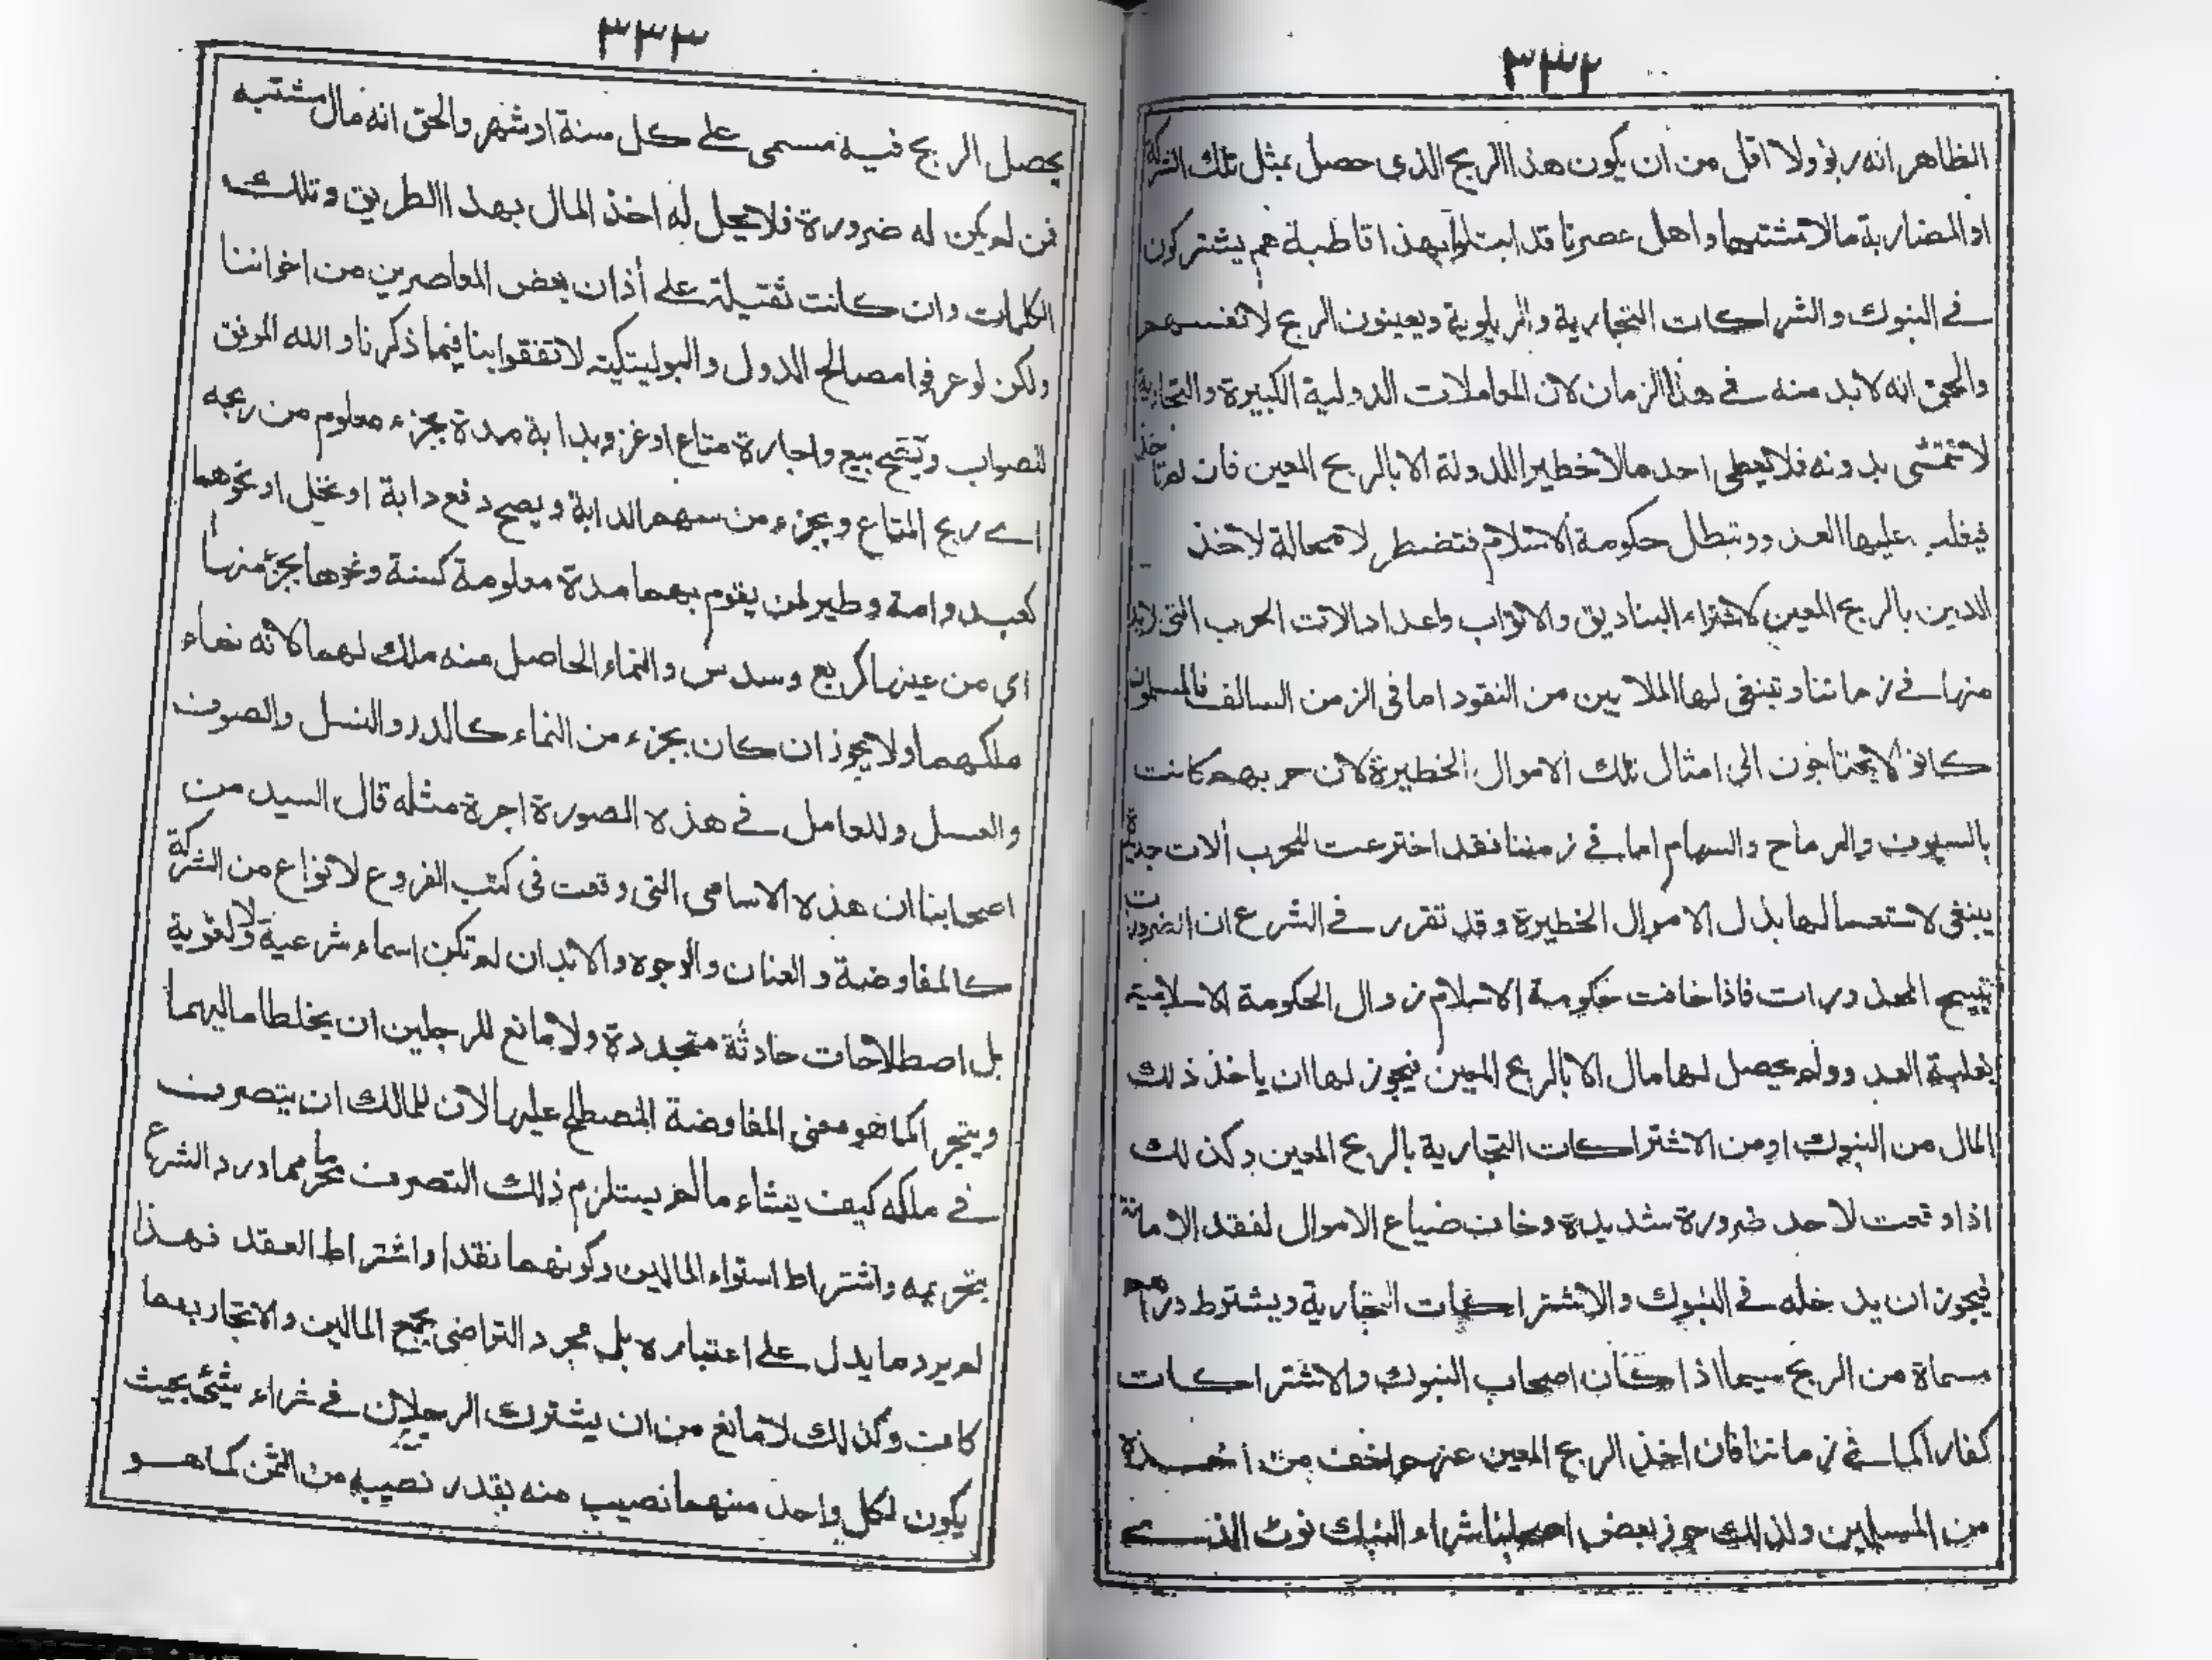 ٣٣٢
الظاهر انه ربو ولا اقل من ان يكون هذا الربح الذى حصل بمثل تلك الشركة
او المضاربة مالا مشتبها واهل عصرنا قد ابتلوا بهذا قاطبة هم يشتركون
في البنوك والشراكات التجارية والريلوية ويعينون الربح لانفسهم
والحق انه لا بد منه في هذا الزمان لان المعاملات الدولية الكبيرة والتجارية
لا تتمشى بدونه فلا يعطى احد مالا خطيرا للدولة الا بالربح المعين فان لم تاخذ
فيغلب عليها العدو وتبطل حكومة الاسلام فتضطر لا محالة لاخذ
الدين بالربح المعين لاشتراء البناديق والاتواب واعداد الات الحرب التى لابد
منها في زماننا وتبنغى لها الملايين من النقود اما فى الزمن السالف فالمسلمون
كانوا لا يحتاجون الى امثال تلك الاموال الخطيرة لان حربهم كانت
بالسيوف والرماح والسهام اما في زمننا فقد اخترعت للحرب آلات جديدة
ينبغى لاستعمالها بذل الاموال الخطيرة وقد تقرر في الشرع ان الضرورات
تبيح المحذورات فاذا خافت حكومة الاسلام زوال الحكومة الاسلامية
بغلبة العدو ولم يحصل لها مال الا بالربح المعين فيجوز لها ان ياخذ ذلك
المال من البنوك او من الاشتراكات التجارية بالربح المعين وكذلك
اذا وقعت لاحد ضرورة شديدة وخاف ضياع الاموال لفقد الامانة
فيجوز ان يدخله في البنوك والاشتراكات التجارية ويشترط دراهم
مسماة من الربح سيما اذا كان اصحاب البنوك والاشتراكات
كفارا كما في زماننا فان اخذ الربح المعين عنهم اخف من اخذه
من المسلمين ولذلك جوز بعض اصحابنا شراء البنك نوٹ الذى
٣٣٣
يحصل الربح فيه مسمى على كل سنة او شهر والحق انه مال مشتبه
فمن لم يكن له ضرورة فلا يحل له اخذ المال بهذا الطريق وتلك
الكلمات وان كانت ثقيلة على أذان بعض المعاصرين من اخواننا
ولكن لو عرفوا مصالح الدول والبوليتيكيته لاتفقوا بنا فيما ذكرنا والله الموفق
للصواب وتصح بيع واجارة متاع او غزو بدابة مدة بجزء معلوم من ربحه
اے ربح المتاع وبجزء من سهم الدابة ويصح دفع دابة او نخل او نحوهما
كعبد وامة وطير لمن يقوم بهما مدة معلومة كسنة ونحوها بجزء منهما
اي من عينها كربع وسدس والنماء الحاصل منه ملك لهما لانه نماء
ملكهما ولا يجوز ان كان بجزء من النماء كالدر والنسل والصوف
والعسل وللعامل في هذه الصورة اجرة مثله قال السيد من
اصحابنا ان هذه الاسامى التى وقعت فى كتب الفروع لانواع من الشركة
كالمفاوضة والعنان والوجوه والابدان لم تكن اسماء شرعية ولا لغوية
بل اصطلاحات حادثة متجددة ولا مانع للرجلين ان يخلطا ماليهما
ويتجرا كما هو معنى المفاوضة المصطلح عليها لان للمالك ان يتصرف
في ملكه كيف يشاء ما لم يستلزم ذلك التصرف محرما مما ورد الشرع
بتحريمه واشتراط استواء المالين وكونهما نقدا واشتراط العقد فهذا
لم يرد ما يدل على اعتباره بل مجرد التراضى بجمع المالين والاتجار بهما
كاف وكذلك لا مانع من ان يشترك الرجلان في شراء شئ بحيث
يكون لكل واحد منهما نصيب منه بقدر نصيبه من الثمن كما هو